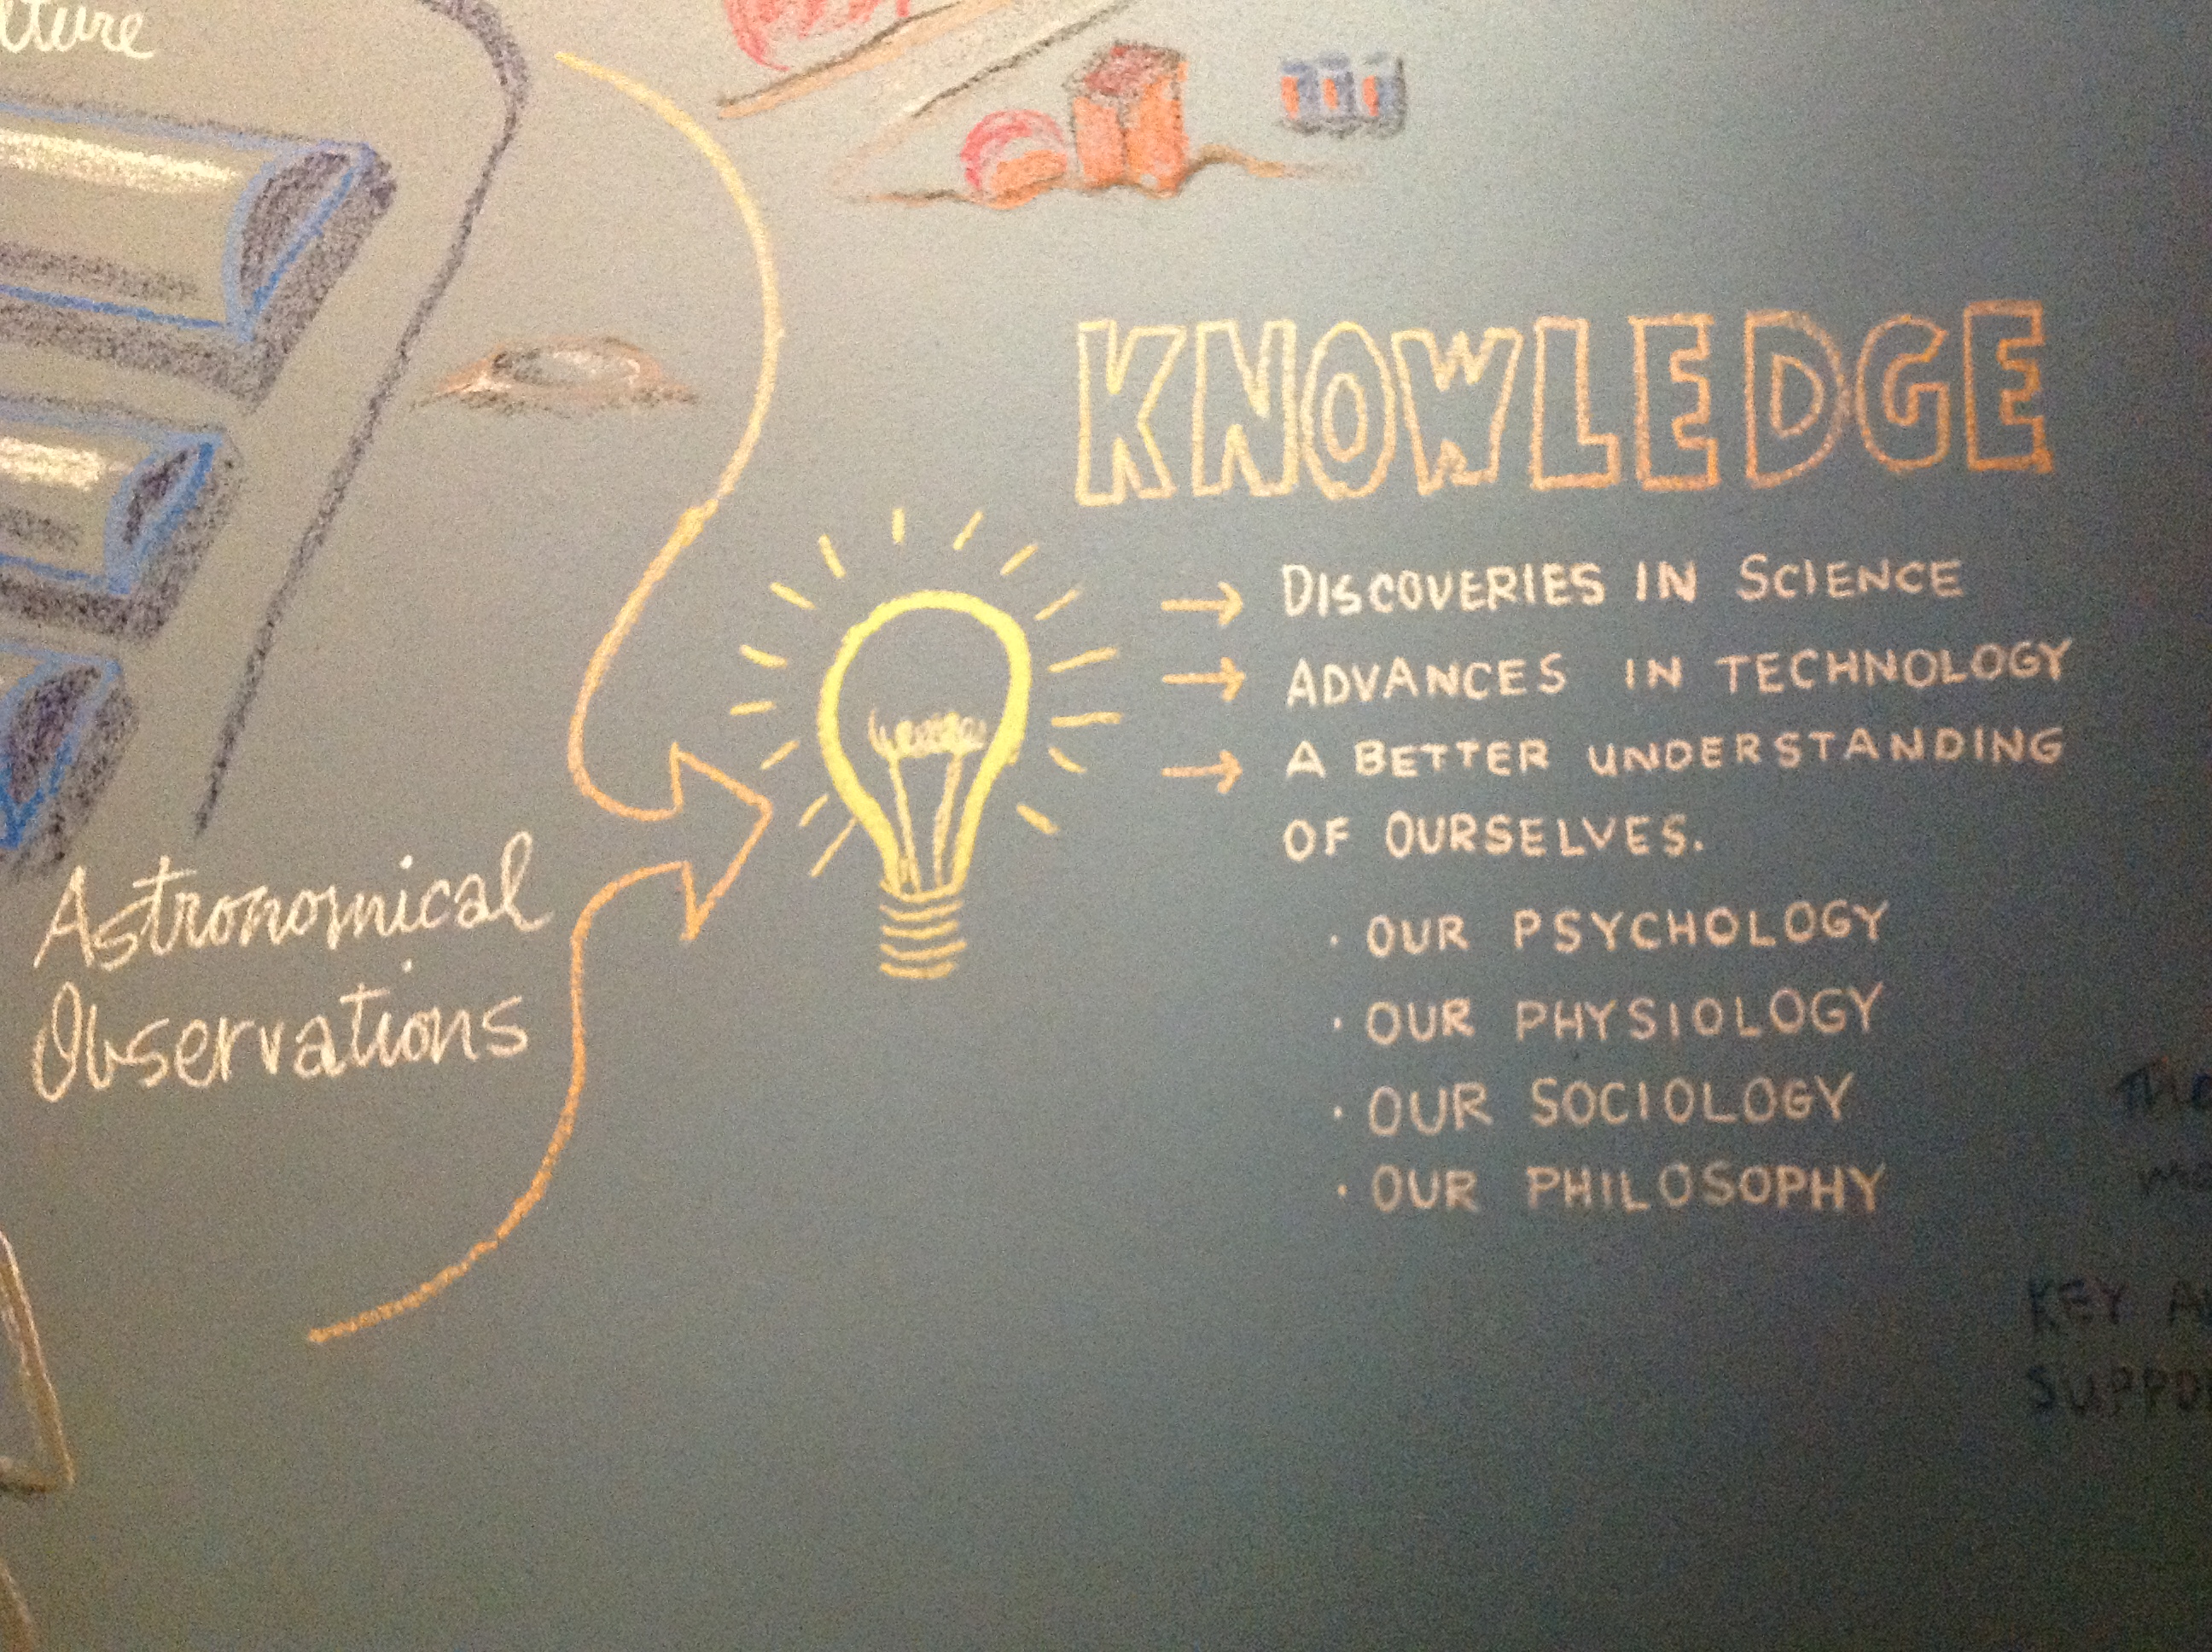 KNOWLEDGE
DISCOVERIES IN SCIENCE
ADVANCES IN TECHNOLOGY
A BETTER UNDERSTANDING
OF OURSELVES.
· OUR PSYCHOLOGY
· OUR PHYSIOLOGY
· OUR SOCIOLOGY
· OUR PHILOSOPHY
Astronomical
Observations
KEY